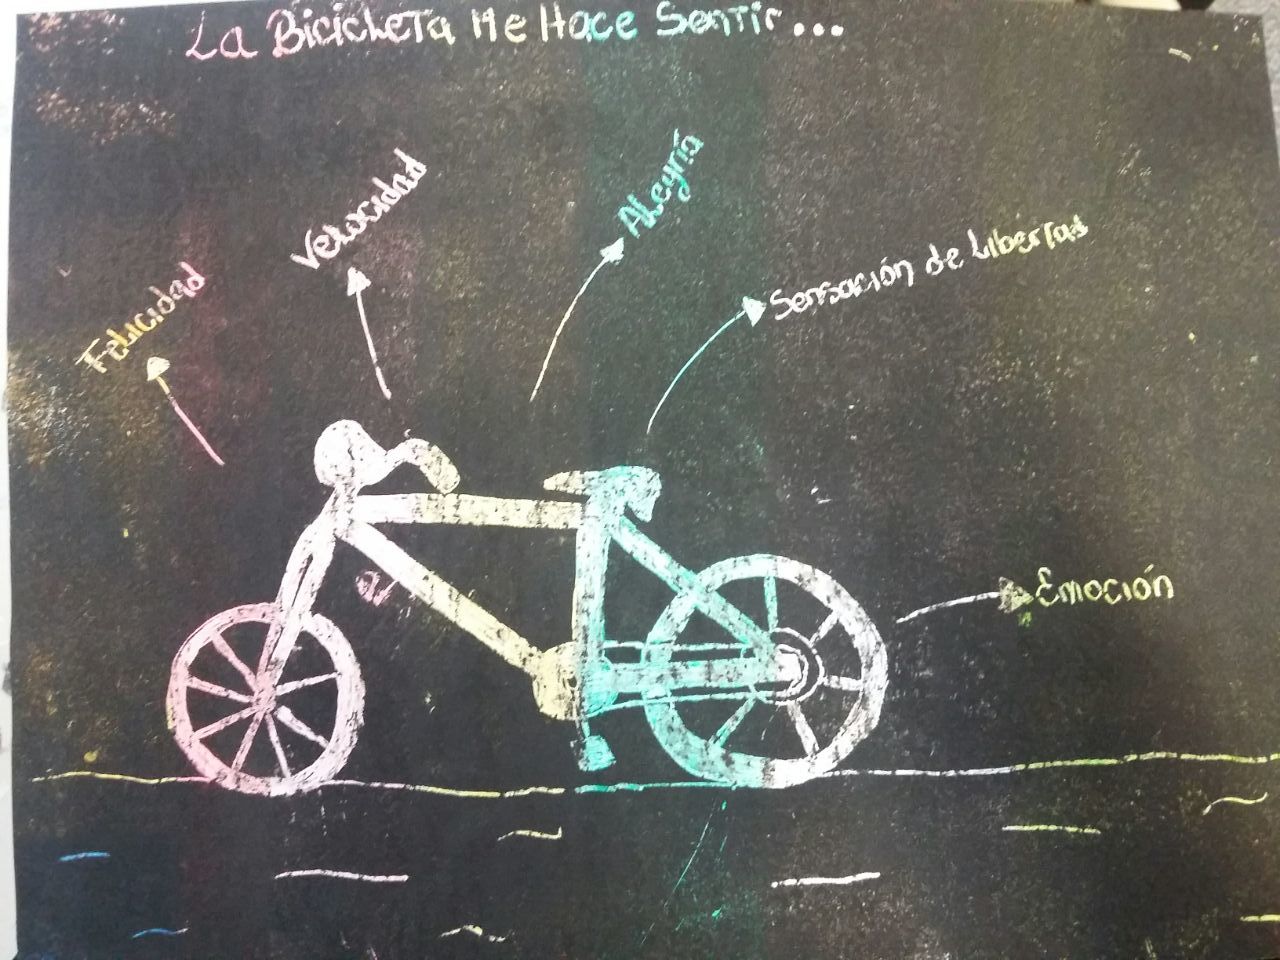 La Bicicleta Me Hace Sentir...
Felicidad
Velocidad
Alegría
Sensación de Libertad
Emoción